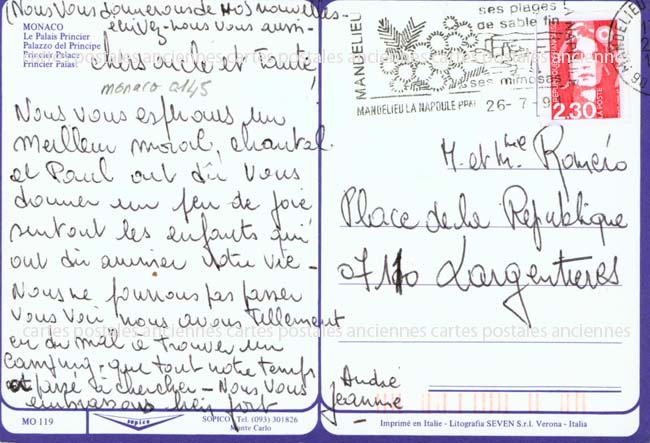 (Nous vous donnerons de nos nouvelles -
écrivez-nous vous aussi -
MONACO
Le Palais Princier
Palazzo del Principe
Prince's Palace
Princier Palias
Chers oncle et Tante
monaco 0145
Nous vous espérons un
meilleur moral, chantal
et Paul ont dû vous
donner un peu de joie
surtout les enfants qui
ont dû animer votre vie -
Nous ne pourrons pas passer
vous voir nous avons tellement
eu du mal à trouver un
camping - que tout notre temps
est passé à chercher - Nous vous
embrassons bien fort
André
Jeannine
MO 119
sopico
SOPICO Tel. (093) 301826
Monte Carlo
MANDELIEU
ses plages
de sable fin
ses mimosas
MANDELIEU LA NAPOULE PPAL
26-7-9
06 MANDELIEU
2,30
LA POSTE
M. et Mme Roméro
Place de la République
07110 Largentières
cartes postales anciennes cartes postales anciennes cartes postales anciennes
Imprimé en Italie - Litografia SEVEN S.r.l. Verona - Italia